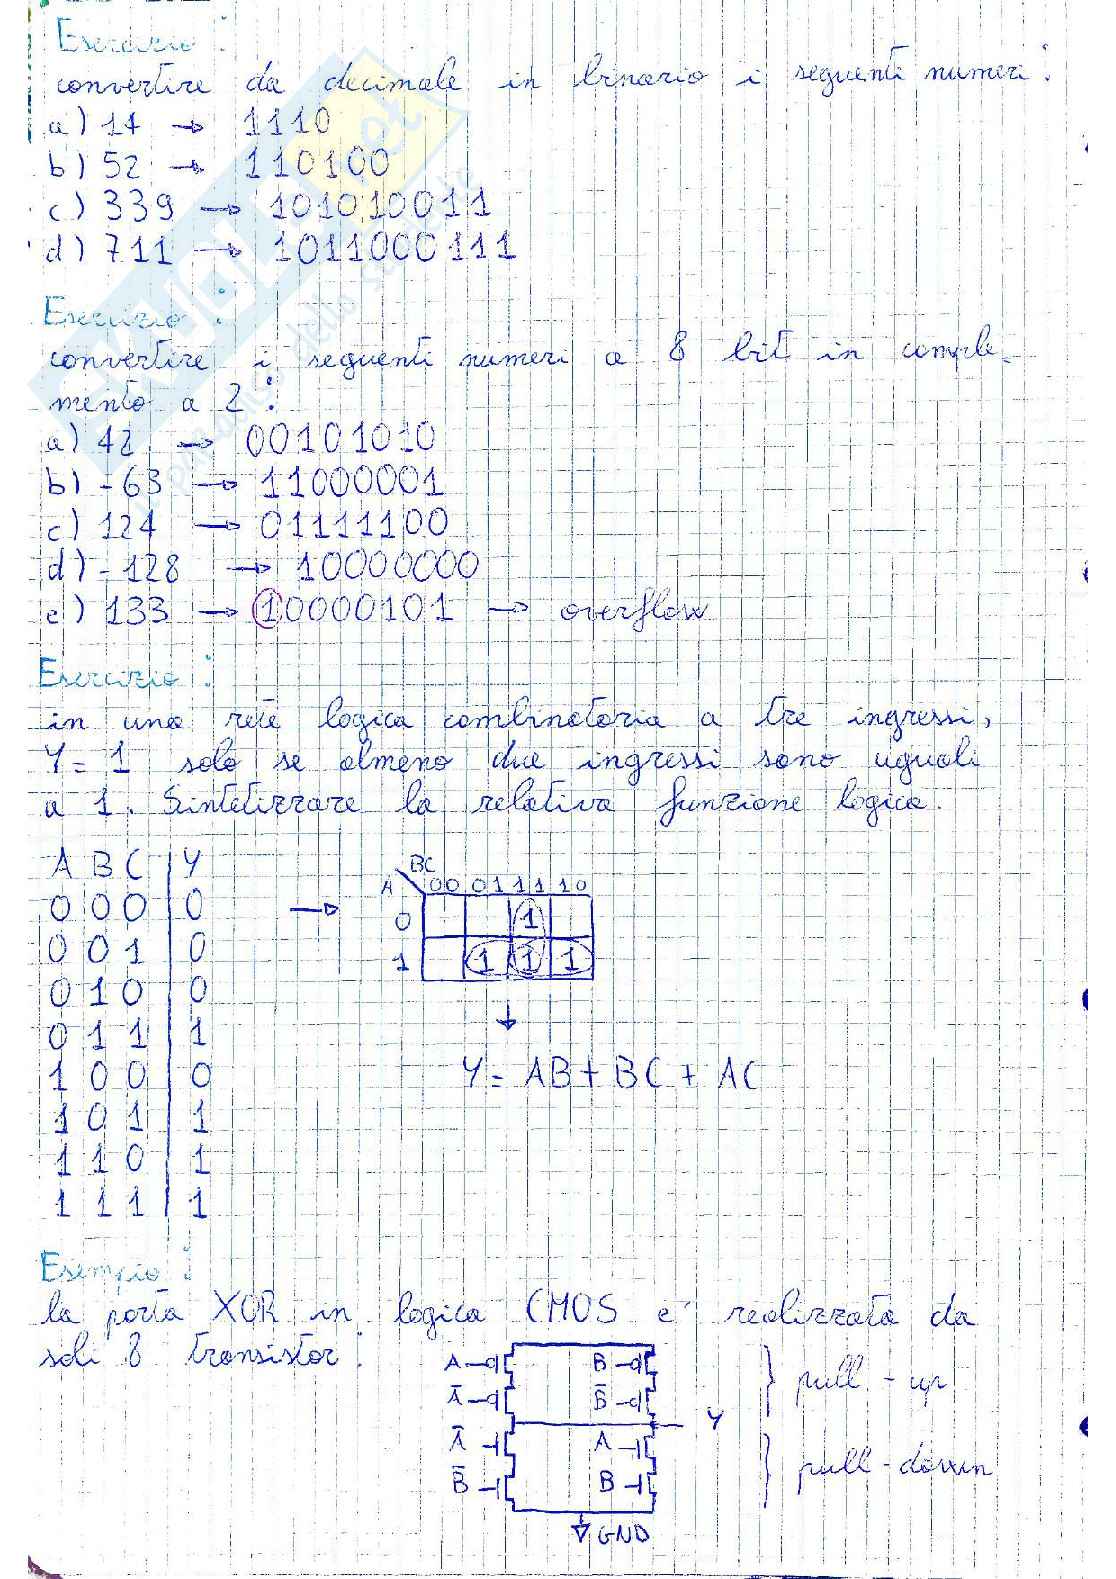 Esercizio :
convertire da decimale in binario i seguenti numeri :
a) 14 → 1110
b) 52 → 110100
c) 339 → 101010011
d) 711 → 1011000111
Esercizio :
convertire i seguenti numeri a 8 bit in comple-
mento a 2 :
a) 42 → 00101010
b) -63 → 11000001
c) 124 → 01111100
d) -128 → 10000000
e) 133 → 10000101 → overflow
Esercizio :
in una rete logica combinatoria a tre ingressi,
Y = 1 solo se almeno due ingressi sono uguali
a 1. Sintetizzare la relativa funzione logica.
A B C | Y
0 0 0 | 0
0 0 1 | 0
0 1 0 | 0
0 1 1 | 1
1 0 0 | 0
1 0 1 | 1
1 1 0 | 1
1 1 1 | 1
→
BC
A 00 01 11 10
0 1
1 1 1 1
↓
Y = AB + BC + AC
Esempio :
la porta XOR in logica CMOS e' realizzata da
soli 8 transistor :
A B
A̅ B̅ } pull-up
Y
A̅ A
B̅ B } pull-down
GND